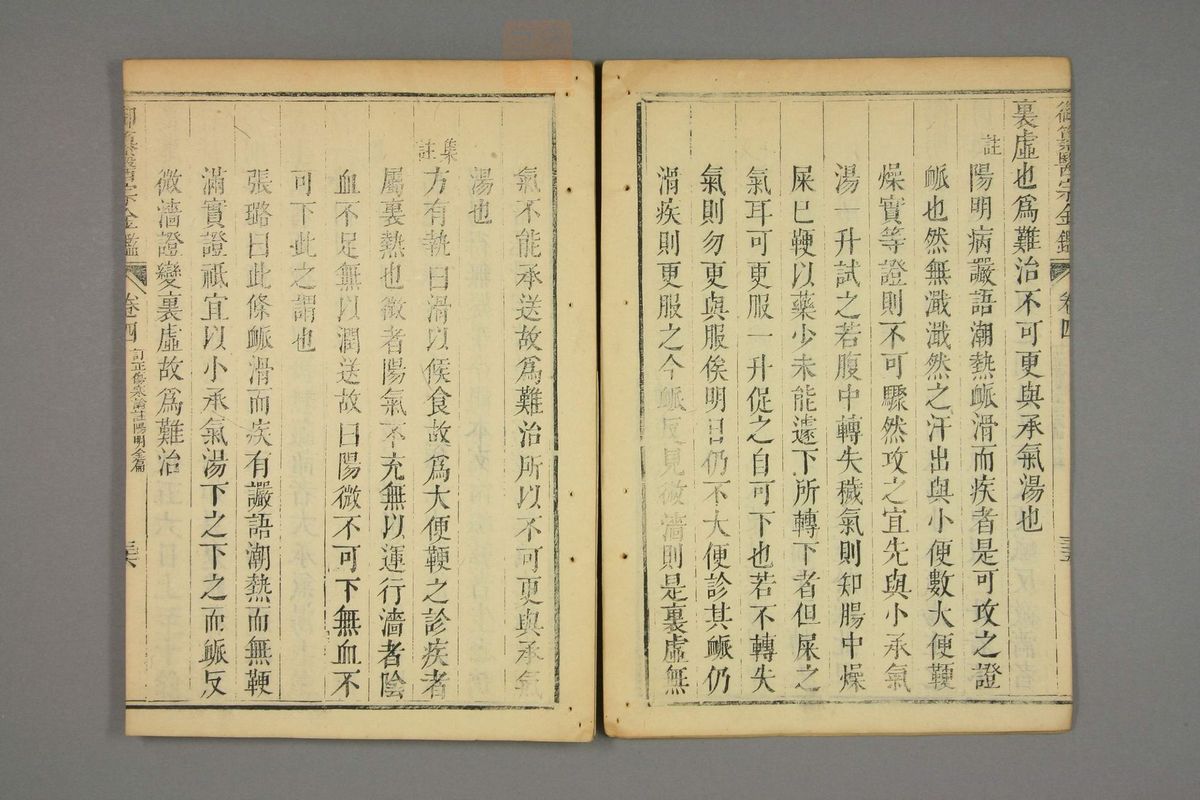 御纂醫宗金鑑 卷四 三五
裏虛也爲難治不可更與承氣湯也
註
陽明病讝語潮熱䘑滑而疾者是可攻之證
䘑也然無濈濈然之汗出與小便數大便鞕
燥實等證則不可驟然攻之宜先與小承氣
湯一升試之若腹中轉失穢氣則知腸中燥
屎已鞕以藥少未能遽下所轉下者但屎之
氣耳可更服一升促之自可下也若不轉失
氣則勿更與服俟明日仍不大便診其䘑仍
滑疾則更服之今䘑反見微濇則是裏虛無
氣不能承送故爲難治所以不可更與承氣
湯也
集註
方有執曰滑以候食故爲大便鞕之診疾者
屬裏熱也微者陽氣不充無以運行濇者陰
血不足無以潤送故曰陽微不可下無血不
可下此之謂也
張璐曰此條䘑滑而疾有讝語潮熱而無鞕
滿實證祗宜以小承氣湯下之下之而䘑反
微濇證變裏虛故爲難治
御纂醫宗金鑑 卷四 訂正傷寒論註陽明全篇 三六